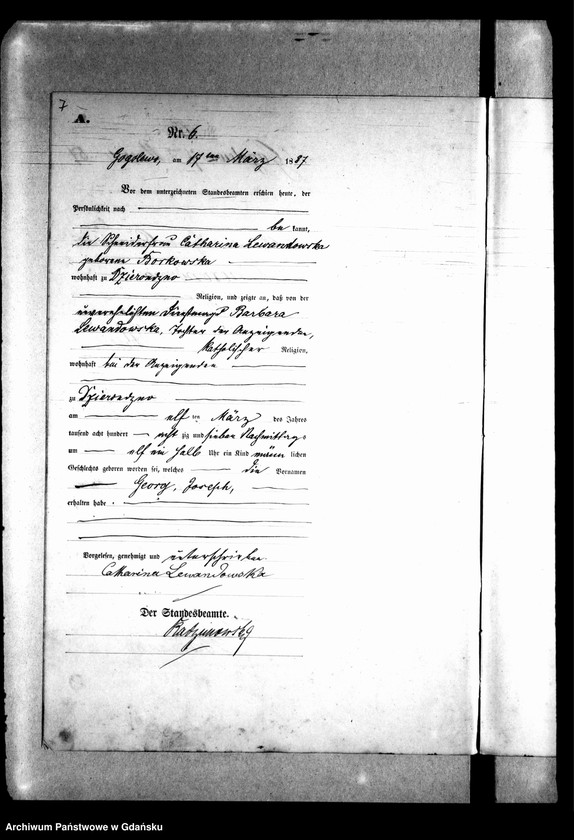 7
A.
Nr. 6.
Gogolewo, am 17ten März 1887
Vor dem unterzeichneten Standesbeamten erschien heute, der
Persönlichkeit nach
be kannt,
die Schneiderfrau Catharina Lewandowska
geborene Borkowska
wohnhaft zu Dzierondzno
Religion, und zeigte an, daß von der
unverehelichten Dienstmagd Barbara
Lewandowska, Tochter der Anzeigenden,
katholischer Religion,
wohnhaft bei der Anzeigenden
zu Dzierondzno
am elf ten März des Jahres
tausend acht hundert acht zig und sieben Nachmittags
um elf ein halb Uhr ein Kind männ lichen
Geschlechts geboren worden sei, welches die Vornamen
Georg, Joseph,
erhalten habe.
Vorgelesen, genehmigt und unterschrieben
Catharina Lewandowska
Der Standesbeamte.
Archiwum Państwowe w Gdańsku